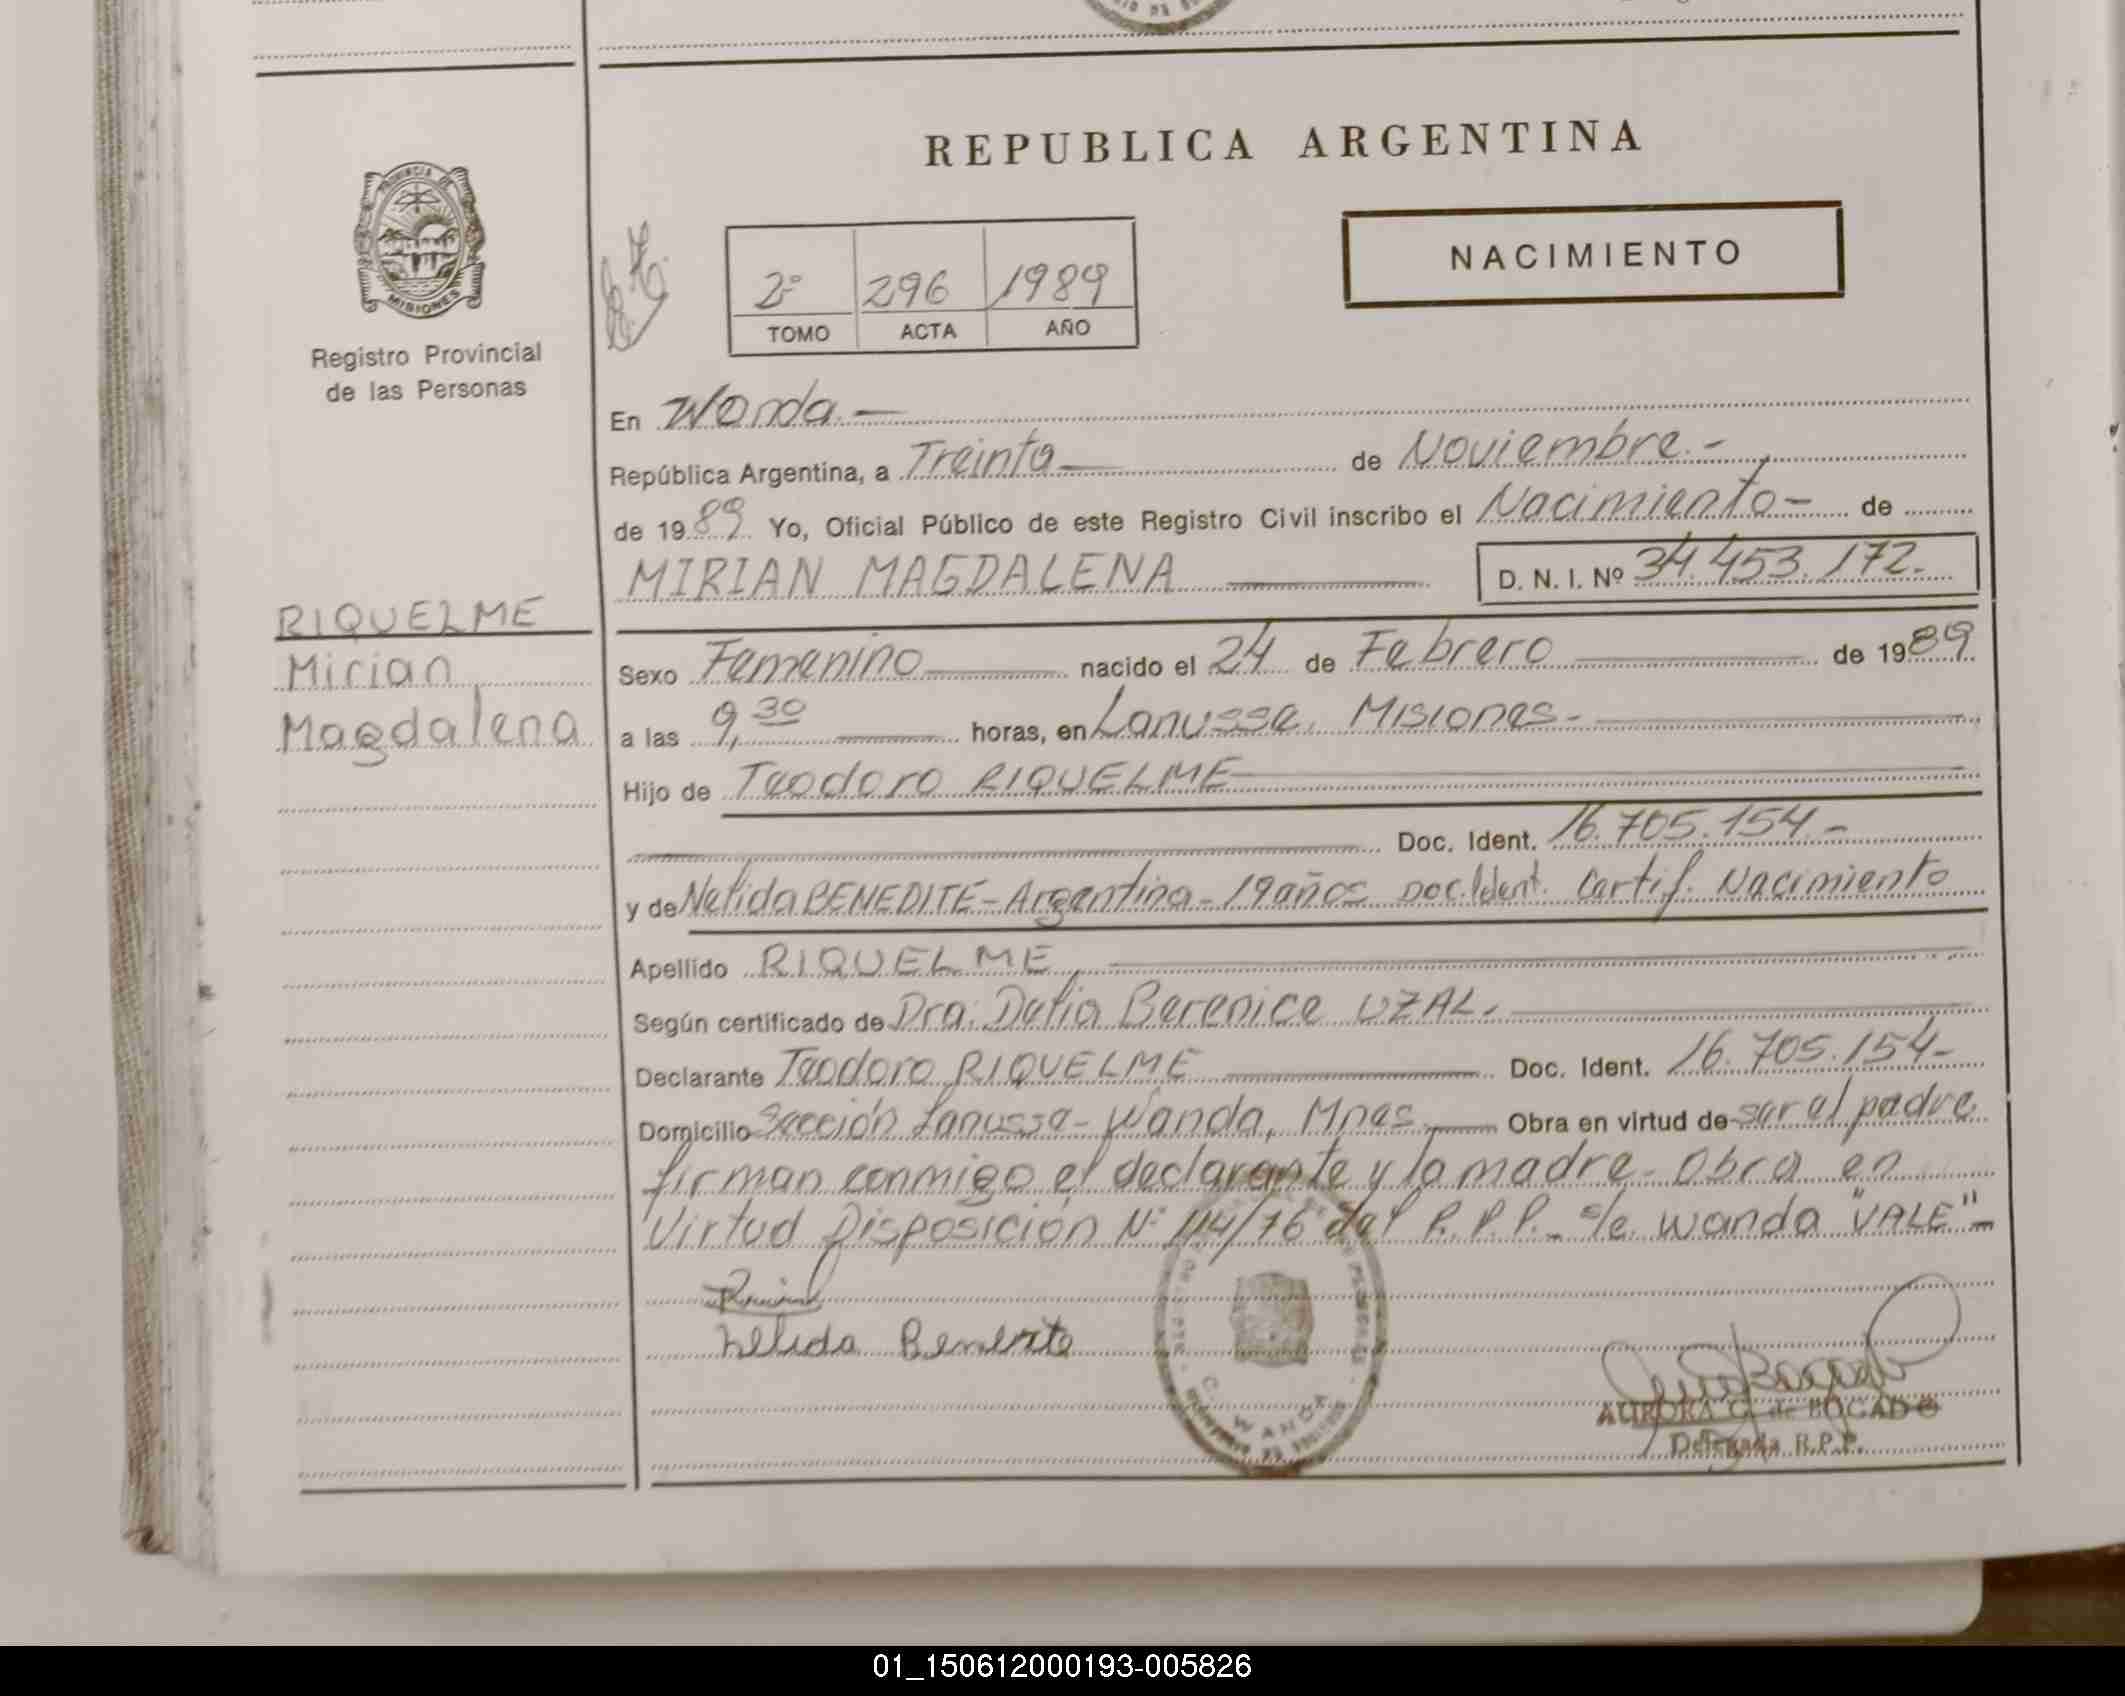 REPUBLICA ARGENTINA
PROVINCIA DE
MISIONES
Registro Provincial
de las Personas
NACIMIENTO
2º 296 1989
TOMO ACTA AÑO
En Wanda.-
República Argentina, a Treinta de Noviembre.-
de 1989. Yo, Oficial Público de este Registro Civil inscribo el Nacimiento- de
MIRIAN MAGDALENA D. N. I. Nº 34.453.172.-
RIQUELME
Mirian
Magdalena
Sexo Femenino nacido el 24 de Febrero de 1989.
a las 9,30 horas, en Lanusse, Misiones.-
Hijo de Teodoro RIQUELME
Doc. Ident. 16.705.154.-
y de Nelida BENEDITE-Argentina-19 años Doc.Ident. Certif. Nacimiento
Apellido RIQUELME
Según certificado de Dra: Delia Berenice UZAL.
Declarante Teodoro RIQUELME Doc. Ident. 16.705.154-
Domicilio Sección Lanusse-Wanda, Mnes. Obra en virtud de ser el padre
firman conmigo el declarante y la madre- Obra en
Virtud Disposición Nº 114/76 del R.P.P.- s/e Wanda "VALE"-
Nelida
WANDA
AURORA G. de BOGADO
Delegada R.P.P.
01_150612000193-005826